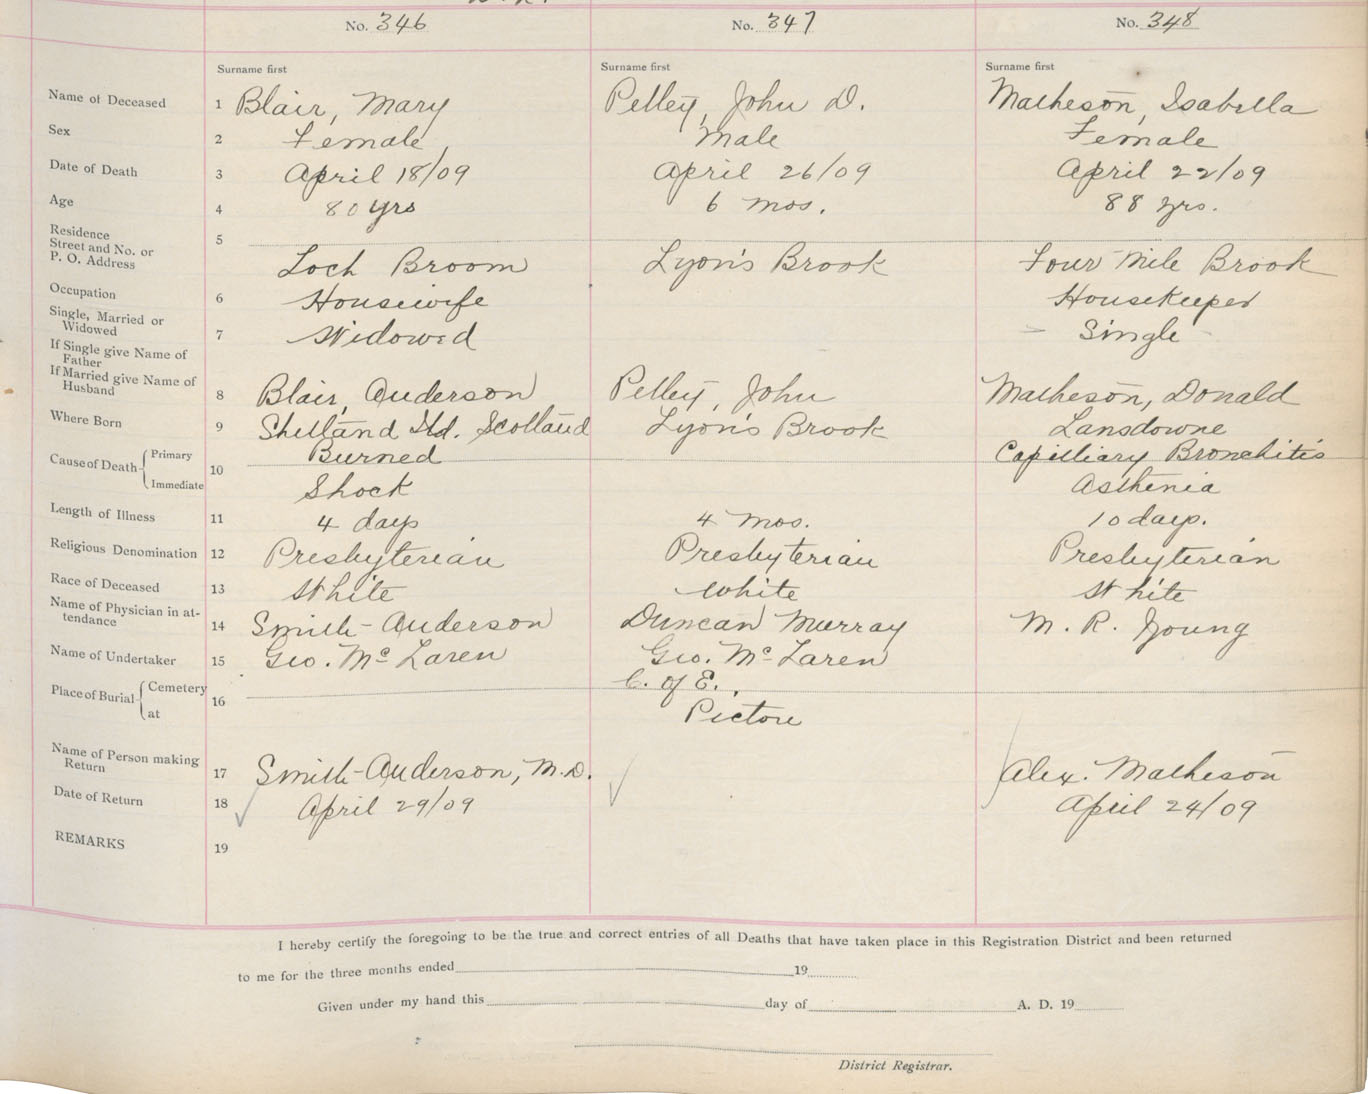 No. 346 No. 347 No. 348
Surname first Surname first Surname first
Name of Deceased 1 Blair, Mary Pelley, John D. Matheson, Isabella
Sex 2 Female Male Female
Date of Death 3 April 18/09 April 26/09 April 22/09
Age 4 80 yrs 6 mos. 88 yrs.
Residence
Street and No. or 5
P. O. Address Loch Broom Lyon's Brook Four Mile Brook
Occupation 6 Housewife Housekeeper
Single, Married or
Widowed 7 Widowed Single
If Single give Name of
Father
If Married give Name of
Husband 8 Blair, Anderson Pelley, John Matheson, Donald
Where Born 9 Shetland Isd. Scotland Lyon's Brook Lansdowne
Cause of Death Primary 10 Burned Capilliary Bronchitis
Immediate Shock Asthenia
Length of Illness 11 4 days 4 mos. 10 days.
Religious Denomination 12 Presbyterian Presbyterian Presbyterian
Race of Deceased 13 White White White
Name of Physician in at-
tendance 14 Smith-Anderson Duncan Murray M. R. Young
Name of Undertaker 15 Geo. McLaren Geo. McLaren
Place of Burial Cemetery 16 C. of E.
at Pictou
Name of Person making
Return 17 Smith-Anderson, M.D. Alex. Matheson
Date of Return 18 April 29/09 April 24/09
REMARKS 19
I hereby certify the foregoing to be the true and correct entries of all Deaths that have taken place in this Registration District and been returned
to me for the three months ended 19
Given under my hand this day of A. D. 19
District Registrar.